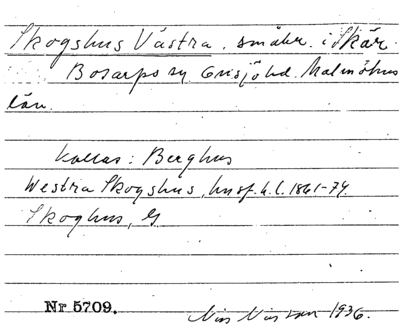 Skogshus Västra. småbr. i Skär.
Bosarps sn Onsjöhd. Malmöhus
län.
kallas: Berghus
Westra Skogshus, husf.h.l. 1861-74
Skoghus, G
Nr 5709.
1936.